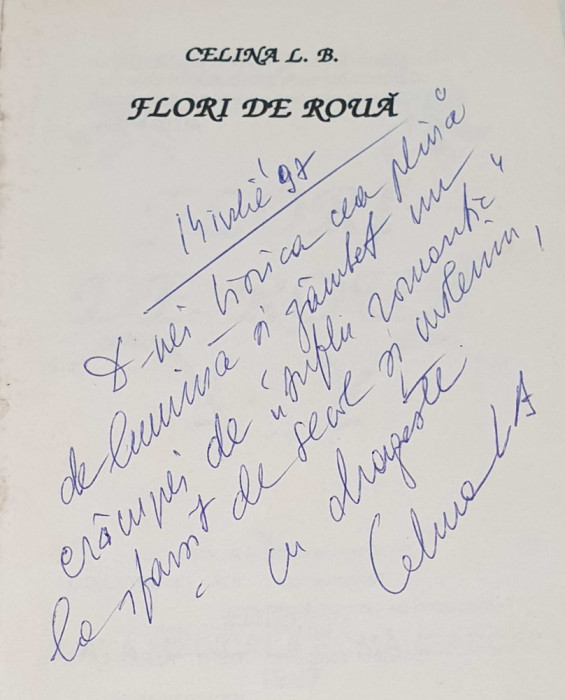 CELINA L. B.
FLORI DE ROUĂ
14 iulie '97
D-nei Viorica cea plină
de lumină și zâmbet un
crâmpei de "suflu romantic"
la sfârșit de secol și mileniu,
cu dragoste
Celina LB